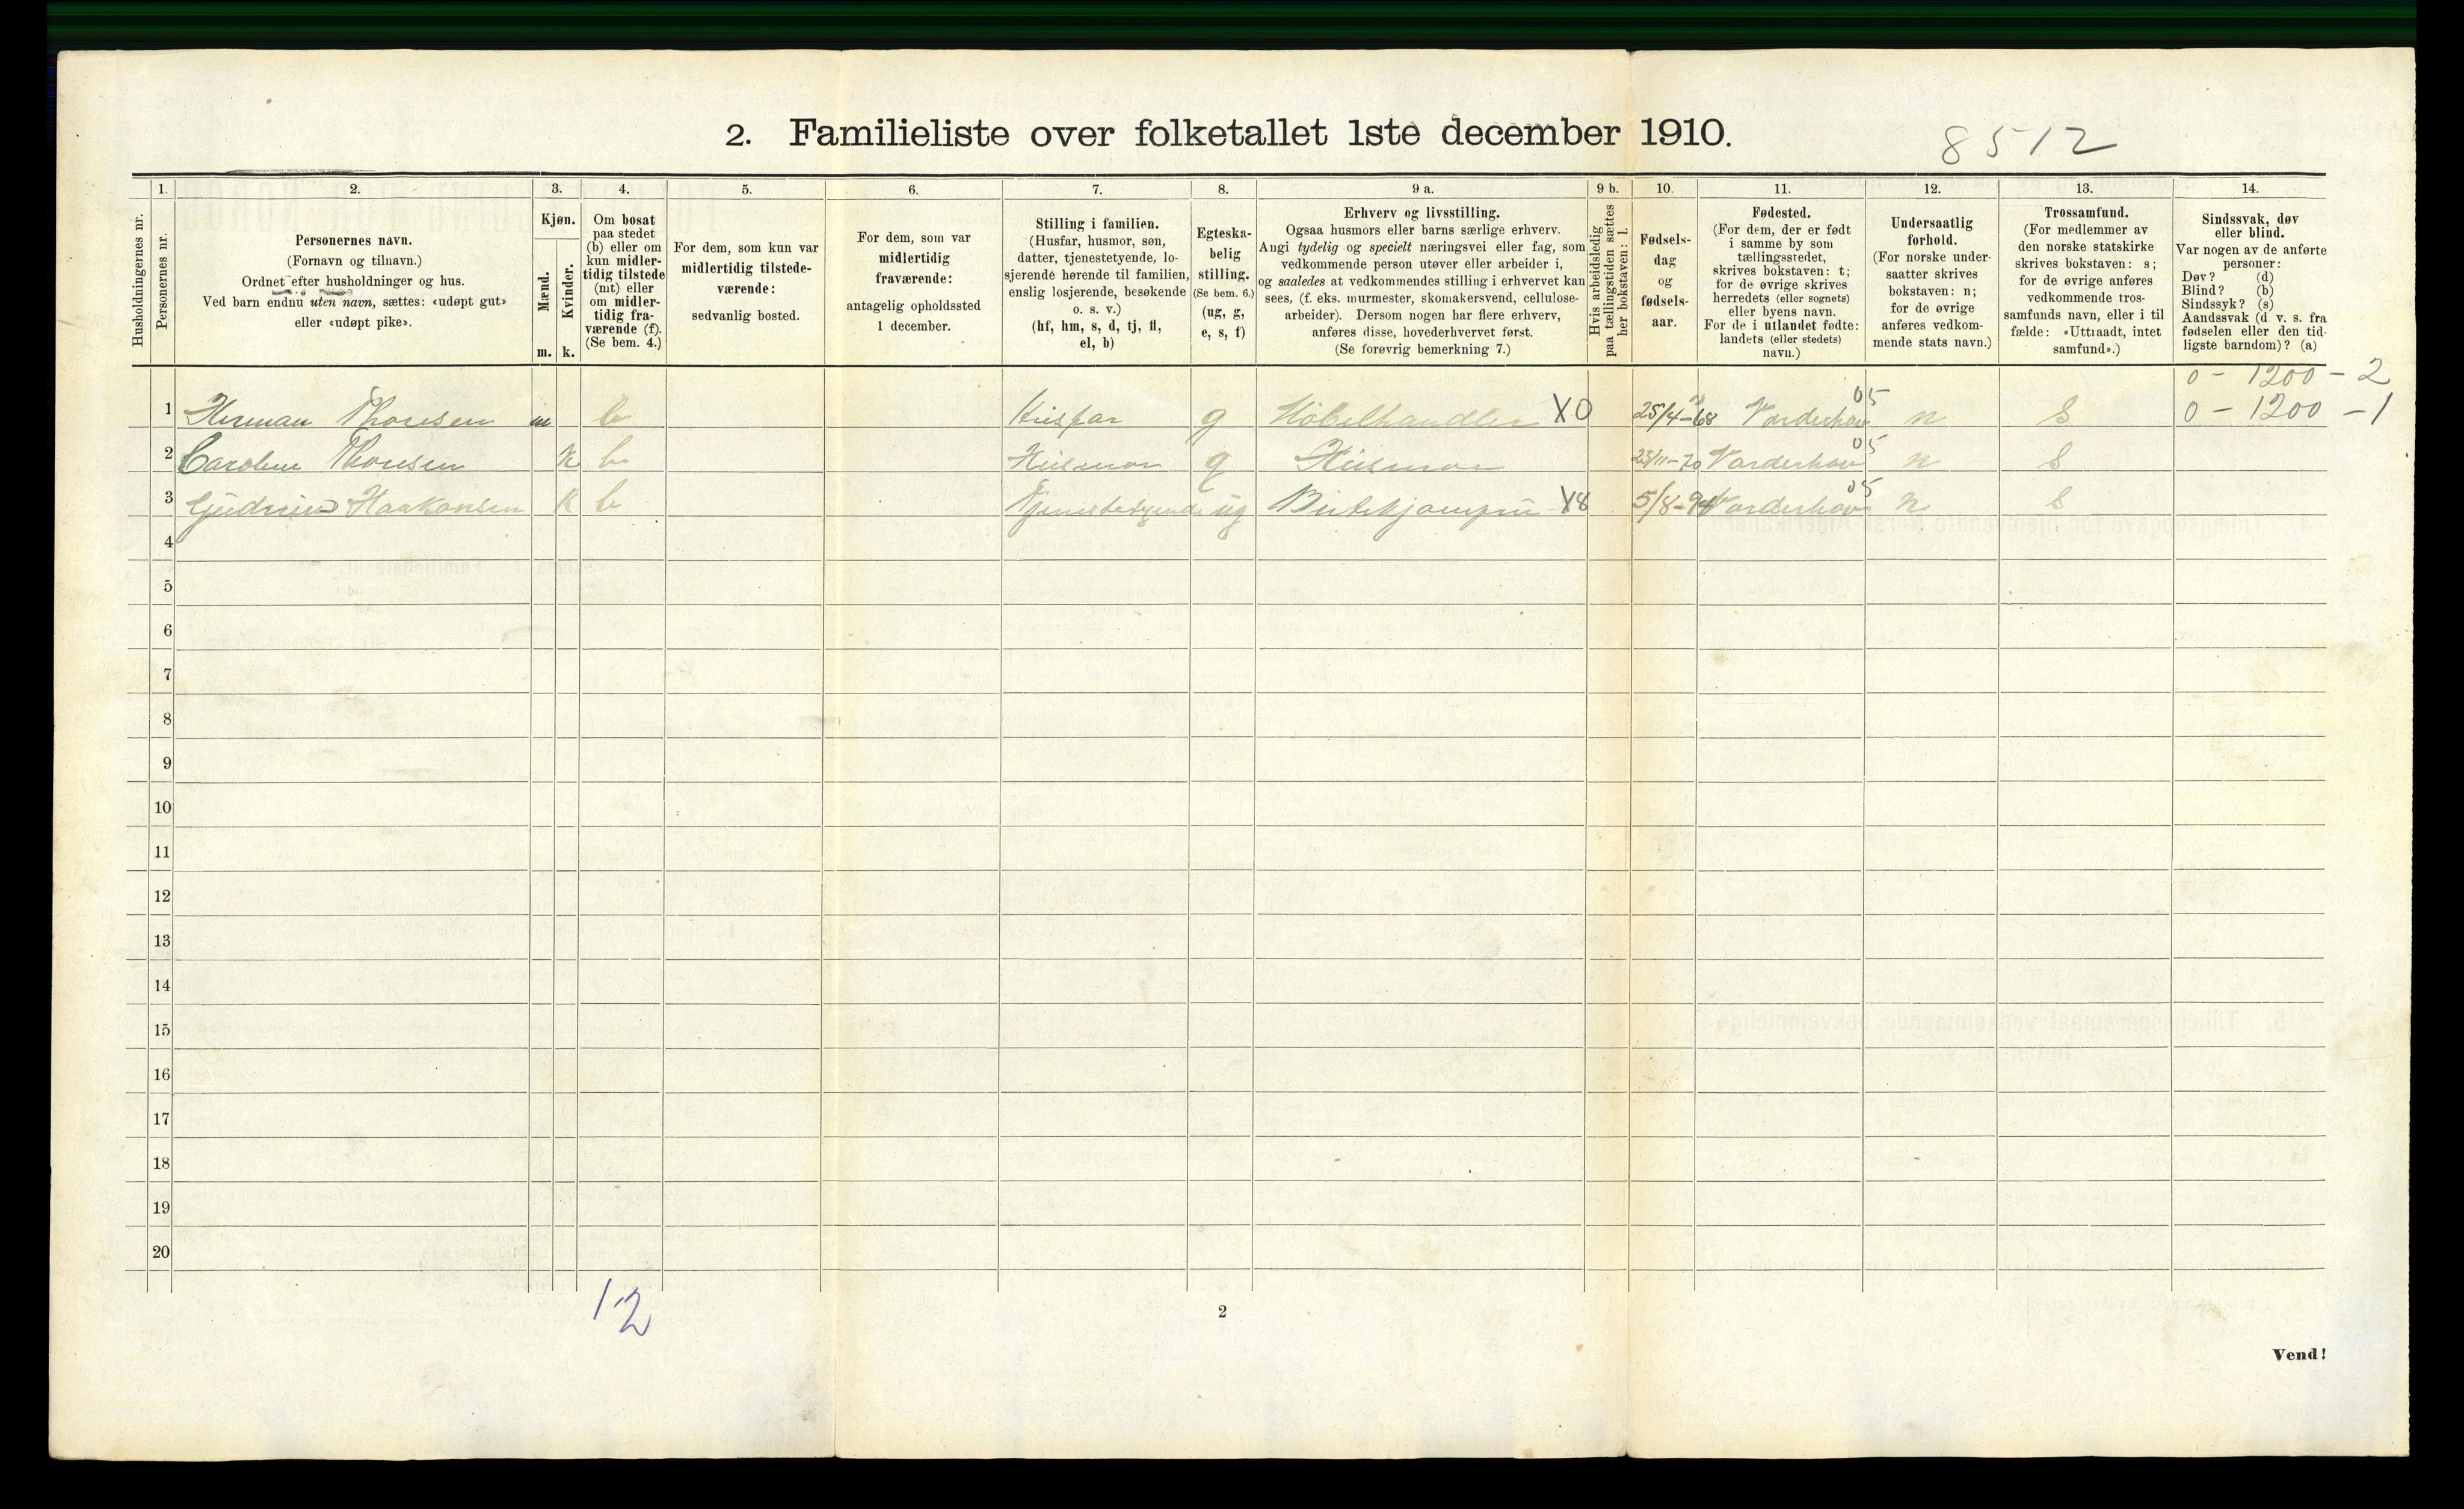 2. Familieliste over folketallet 1ste december 1910.
8512
Husholdningernes nr.
1.
Personernes nr.
2.
Personernes navn.
(Fornavn og tilnavn.)
Ordnet efter husholdninger og hus.
Ved barn endnu uten navn, sættes: «udøpt gut»
eller «udøpt pike».
3.
Kjøn.
Mænd.
Kvinder.
m. k.
4.
Om bosat
paa stedet
(b) eller om
kun midler-
tidig tilstede
(mt) eller
om midler-
tidig fra-
værende (f).
(Se bem. 4.)
5.
For dem, som kun var
midlertidig tilstede-
værende:
sedvanlig bosted.
6.
For dem, som var
midlertidig
fraværende:
antagelig opholdssted
1 december.
7.
Stilling i familien.
(Husfar, husmor, søn,
datter, tjenestetyende, lo-
sjerende hørende til familien,
enslig losjerende, besøkende
o. s. v.)
(hf, hm, s, d, tj, fl,
el, b)
8.
Egteska-
belig
stilling.
(Se bem. 6.)
(ug, g,
e, s, f)
9 a.
Erhverv og livsstilling.
Ogsaa husmors eller barns særlige erhverv.
Angi tydelig og specielt næringsvei eller fag, som
vedkommende person utøver eller arbeider i,
og saaledes at vedkommendes stilling i erhvervet kan
sees, (f. eks. murmester, skomakersvend, cellulose-
arbeider). Dersom nogen har flere erhverv,
anføres disse, hovederhvervet først.
(Se forøvrig bemerkning 7.)
9 b.
Hvis arbeidsledig
paa tællingstiden sættes
her bokstaven: l.
10.
Fødsels-
dag
og
fødsels-
aar.
11.
Fødested.
(For dem, der er født
i samme by som
tællingsstedet,
skrives bokstaven: t;
for de øvrige skrives
herredets (eller sognets)
eller byens navn.
For de i utlandet fødte:
landets (eller stedets)
navn.)
12.
Undersaatlig
forhold.
(For norske under-
saatter skrives
bokstaven: n;
for de øvrige
anføres vedkom-
mende stats navn.)
13.
Trossamfund.
(For medlemmer av
den norske statskirke
skrives bokstaven: s;
for de øvrige anføres
vedkommende tros-
samfunds navn, eller i til
fælde: «Uttraadt, intet
samfund».)
14.
Sindssvak, døv
eller blind.
Var nogen av de anførte
personer:
Døv? (d)
Blind? (b)
Sindssyk? (s)
Aandssvak (d. v. s. fra
fødselen eller den tid-
ligste barndom)? (a)
0 - 1200 - 2
1 Herman Thoresen m b Husfar g Møbelhandler X0 25/4-68 Norderhov 05 n S 0 - 1200 - 1
2 Caroline Thoresen k b Husmor g Husmor 23/11-70 Norderhov 05 n S
3 Gudrun Haakonsen k b Tjenestetyende ug X8 5/8-94 Norderhov 05 n S
4
5
6
7
8
9
10
11
12
13
14
15
16
17
18
19
20
12
2
Vend!